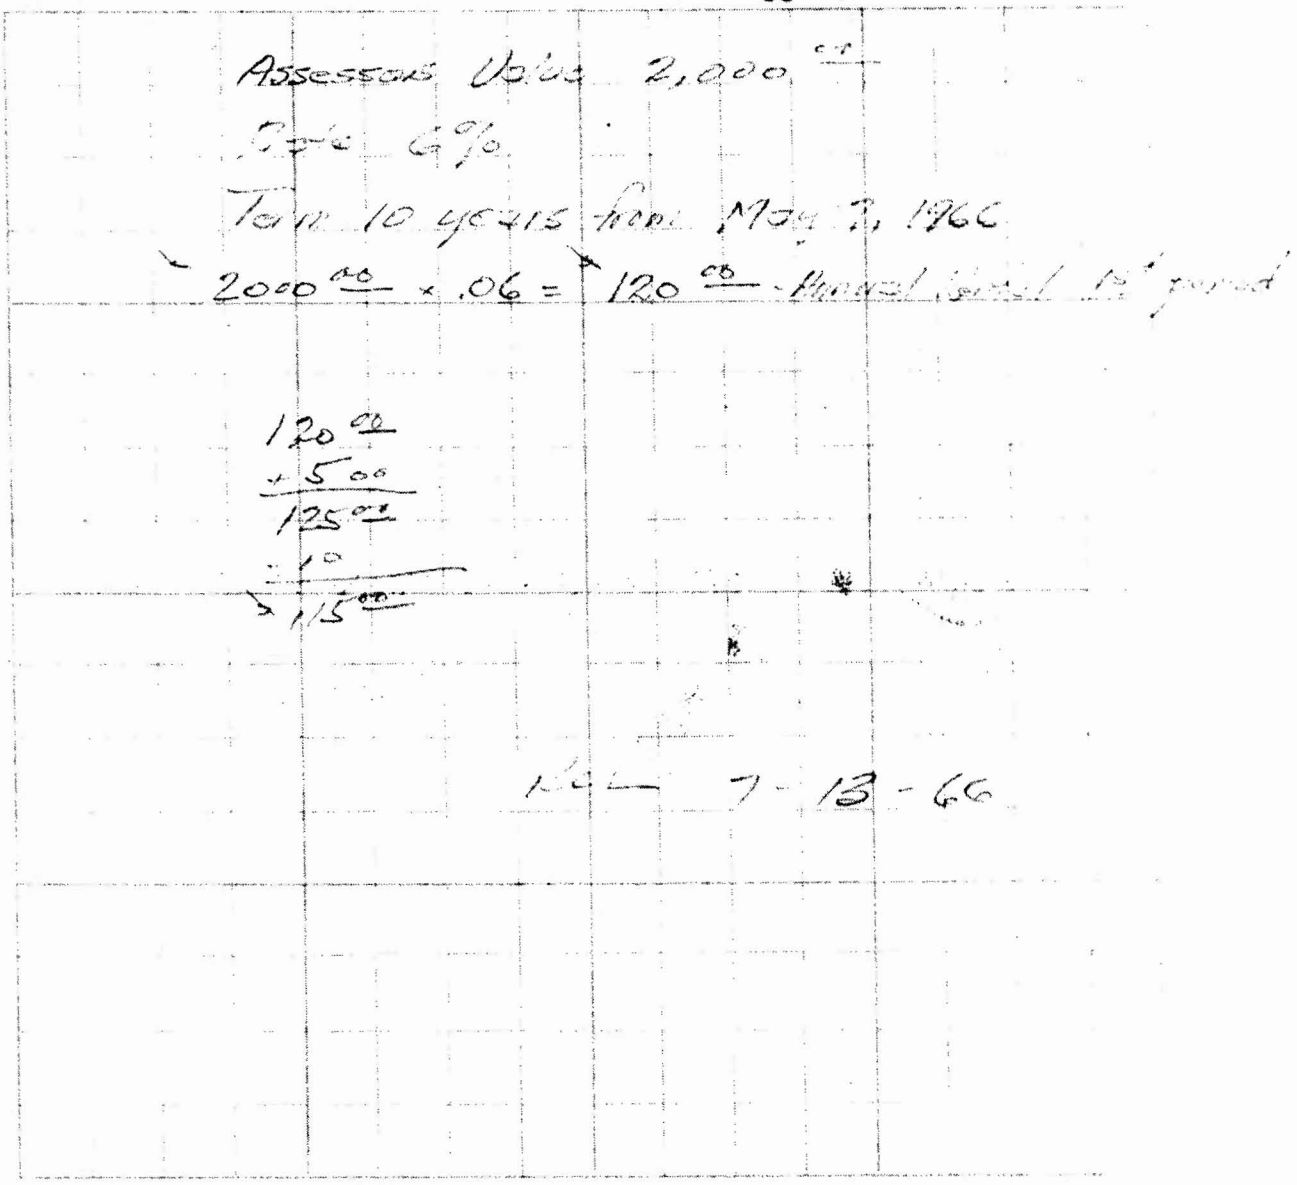 Assessors Value 2,000 00
Rate 6%
Term 10 years from May 2, 1966
2000 00 x .06 = 120 00 - Annual Rental 1st period
120 00
+ 5 00
125 00
- 10
115 00
7 - 13 - 66